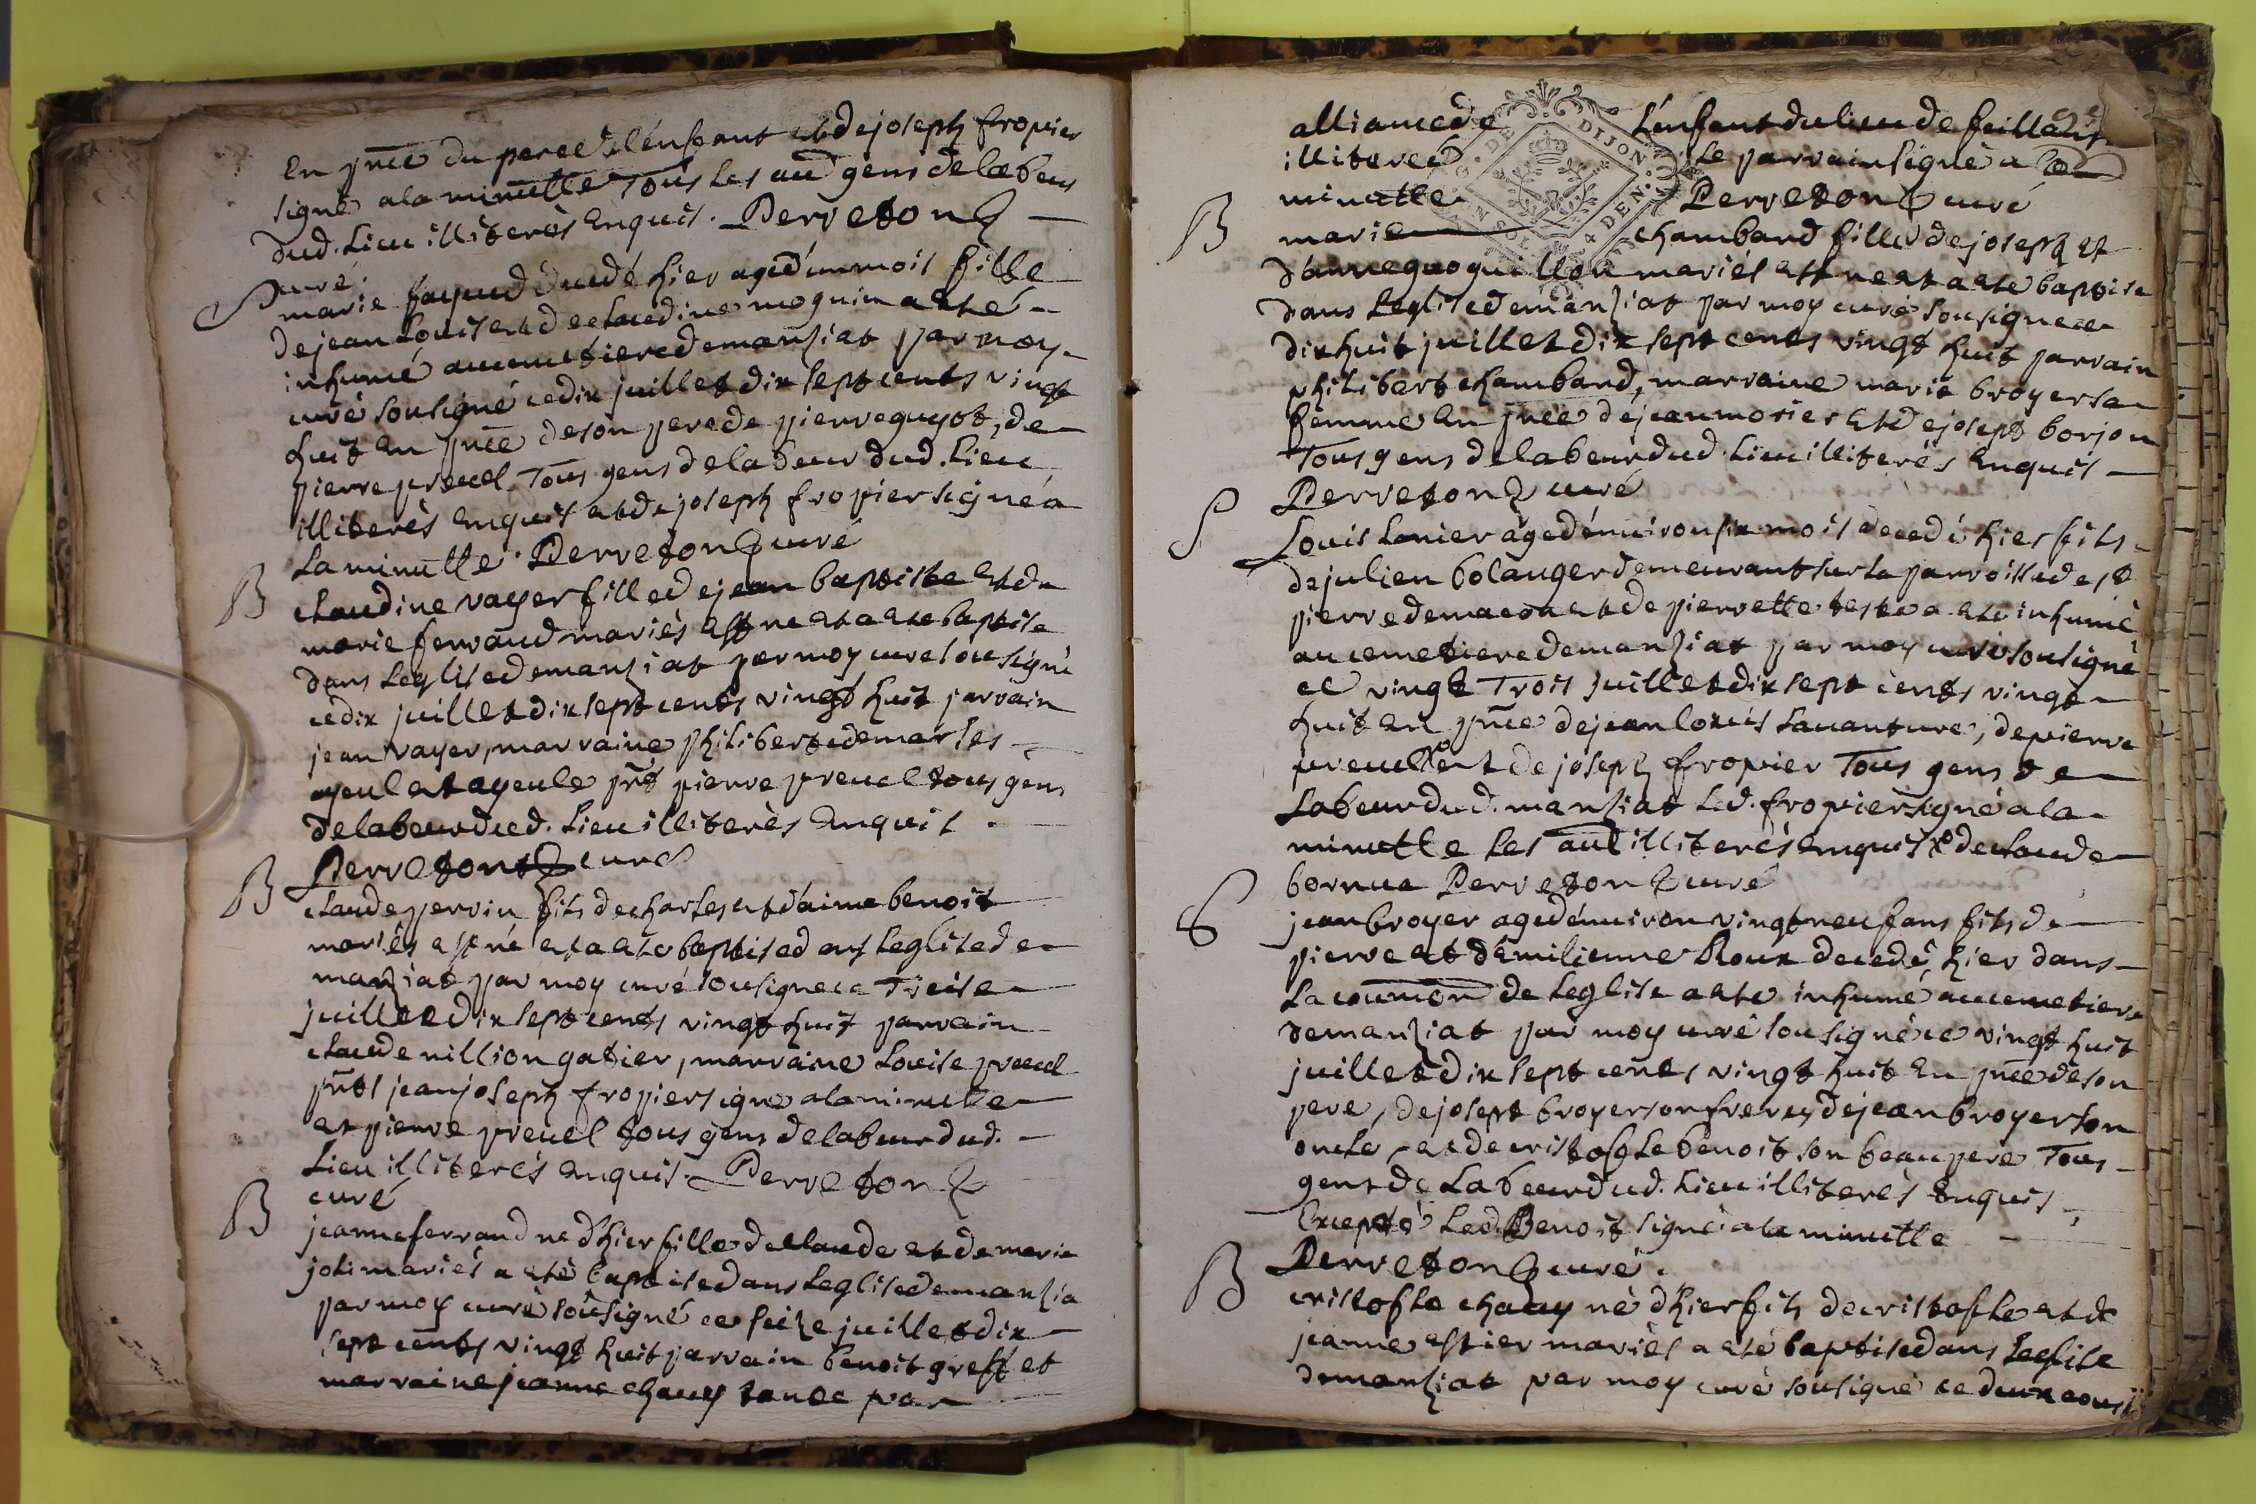 en pnce du pere de lenfant et de joseph fropier
signé a la minutte Tous les aud gens de labeur
dud. Lieu illiterés enquis. Perreton
curé.
S
marie fayaud decedé hier agé d'un mois fille
de jean Louis et de claudine moguin a eté
inhumé au cemetiere de manziat par moy
curé sousigné ce dix juillet dix sept cents vingt
huit en pnce de son pere de pierre guyot, de
pierre preuel Tous gens de labeur dud. Lieu
illiterés enquis et de joseph fropier signé a
La minutte. Perreton curé
B
claudine vayer fille de jean baptiste et de
marie ferraud mariés est né et a eté baptisé
dans Leglise de manziat par moy curé sousigné
ce dix juillet dix sept cents vingt huit parrain
jean vayer, marraine philiberte demarles
ayeul et ayeule pnts pierre preuel tous gens
de labeur dud. Lieu illiterés enquis.
Perreton curé
B
claude perrin fils de charles et d'aime benoit
mariés est né et a eté baptisé dans Leglise de
manziat par moy curé sousigné ce Treise
juillet dix sept cents vingt huit parrain
claude nillion gatier, marraine Louise preuel
pnts jean joseph fropier signé a la minutte
et pierre preuel tous gens de labeur dud.
Lieu illiterés enquis. Perreton
curé
B
jeanne ferrand né d'hier fille de claude et de marie
joli mariés a eté baptisé dans Leglise de manzia
par moy curé sousigné ce seize juillet dix
sept cents vingt huit parrain benoit greffet
marraine jeanne chauy tante par
alliance de L'enfant du lieu de feillans
illiterés Le parrain signé a la
minutte Perreton curé
B
marie chamband fille de joseph et
d'anne guoguillon mariés est né et a eté baptisé
dans Leglise de manziat par moy curé sousigné ce
dix huit juillet dix sept cents vingt huit parrain
philibert chamband, marraine marie broyer sa
femme en pnce de jean morier et de joseph borjon
Tous gens de labeur dud. Lieu illiterés enquis
Perreton curé
S
Louis Lanier agé d'environ six mois decedé hier fils
de julien bolanger demeurant sur la parroisse de st
pierre de macon et de pierrette teste a eté inhumé
au cemetiere de manziat par moy curé sousigné
ce vingt Trois juillet dix sept cents vingt
huit en pnce de jean louis Lauanture, de pierre
preuel et de joseph fropier Tous gens de
Labeur dud. manziat Led. fropier signé a la
minutte Les aut illiterés enquis de claude
bornua Perreton curé
S
jean broyer agé d'environ vingt neuf ans fils de
pierre et d'Emilienne Roux decedé hier dans
La coumon de Leglise a eté inhumé au cemetiere
de manziat par moy curé sousigné ce vingt huit
juillet dix sept cents vingt huit en pnce de son
pere, de joseph broyer son frere, de jean broyer son
oncle, et de cristofle benoit son beau pere Tous
gens de Labeur dud. Lieu illiterés enquis,
Excepté Led. Benoit signé a la minutte
Perreton curé.
B
cristofle chauy né d'hier fils de cristofle et de
jeanne estier mariés a eté baptisé dans Leglise
de manziat par moy curé sousigné ce deux aoust